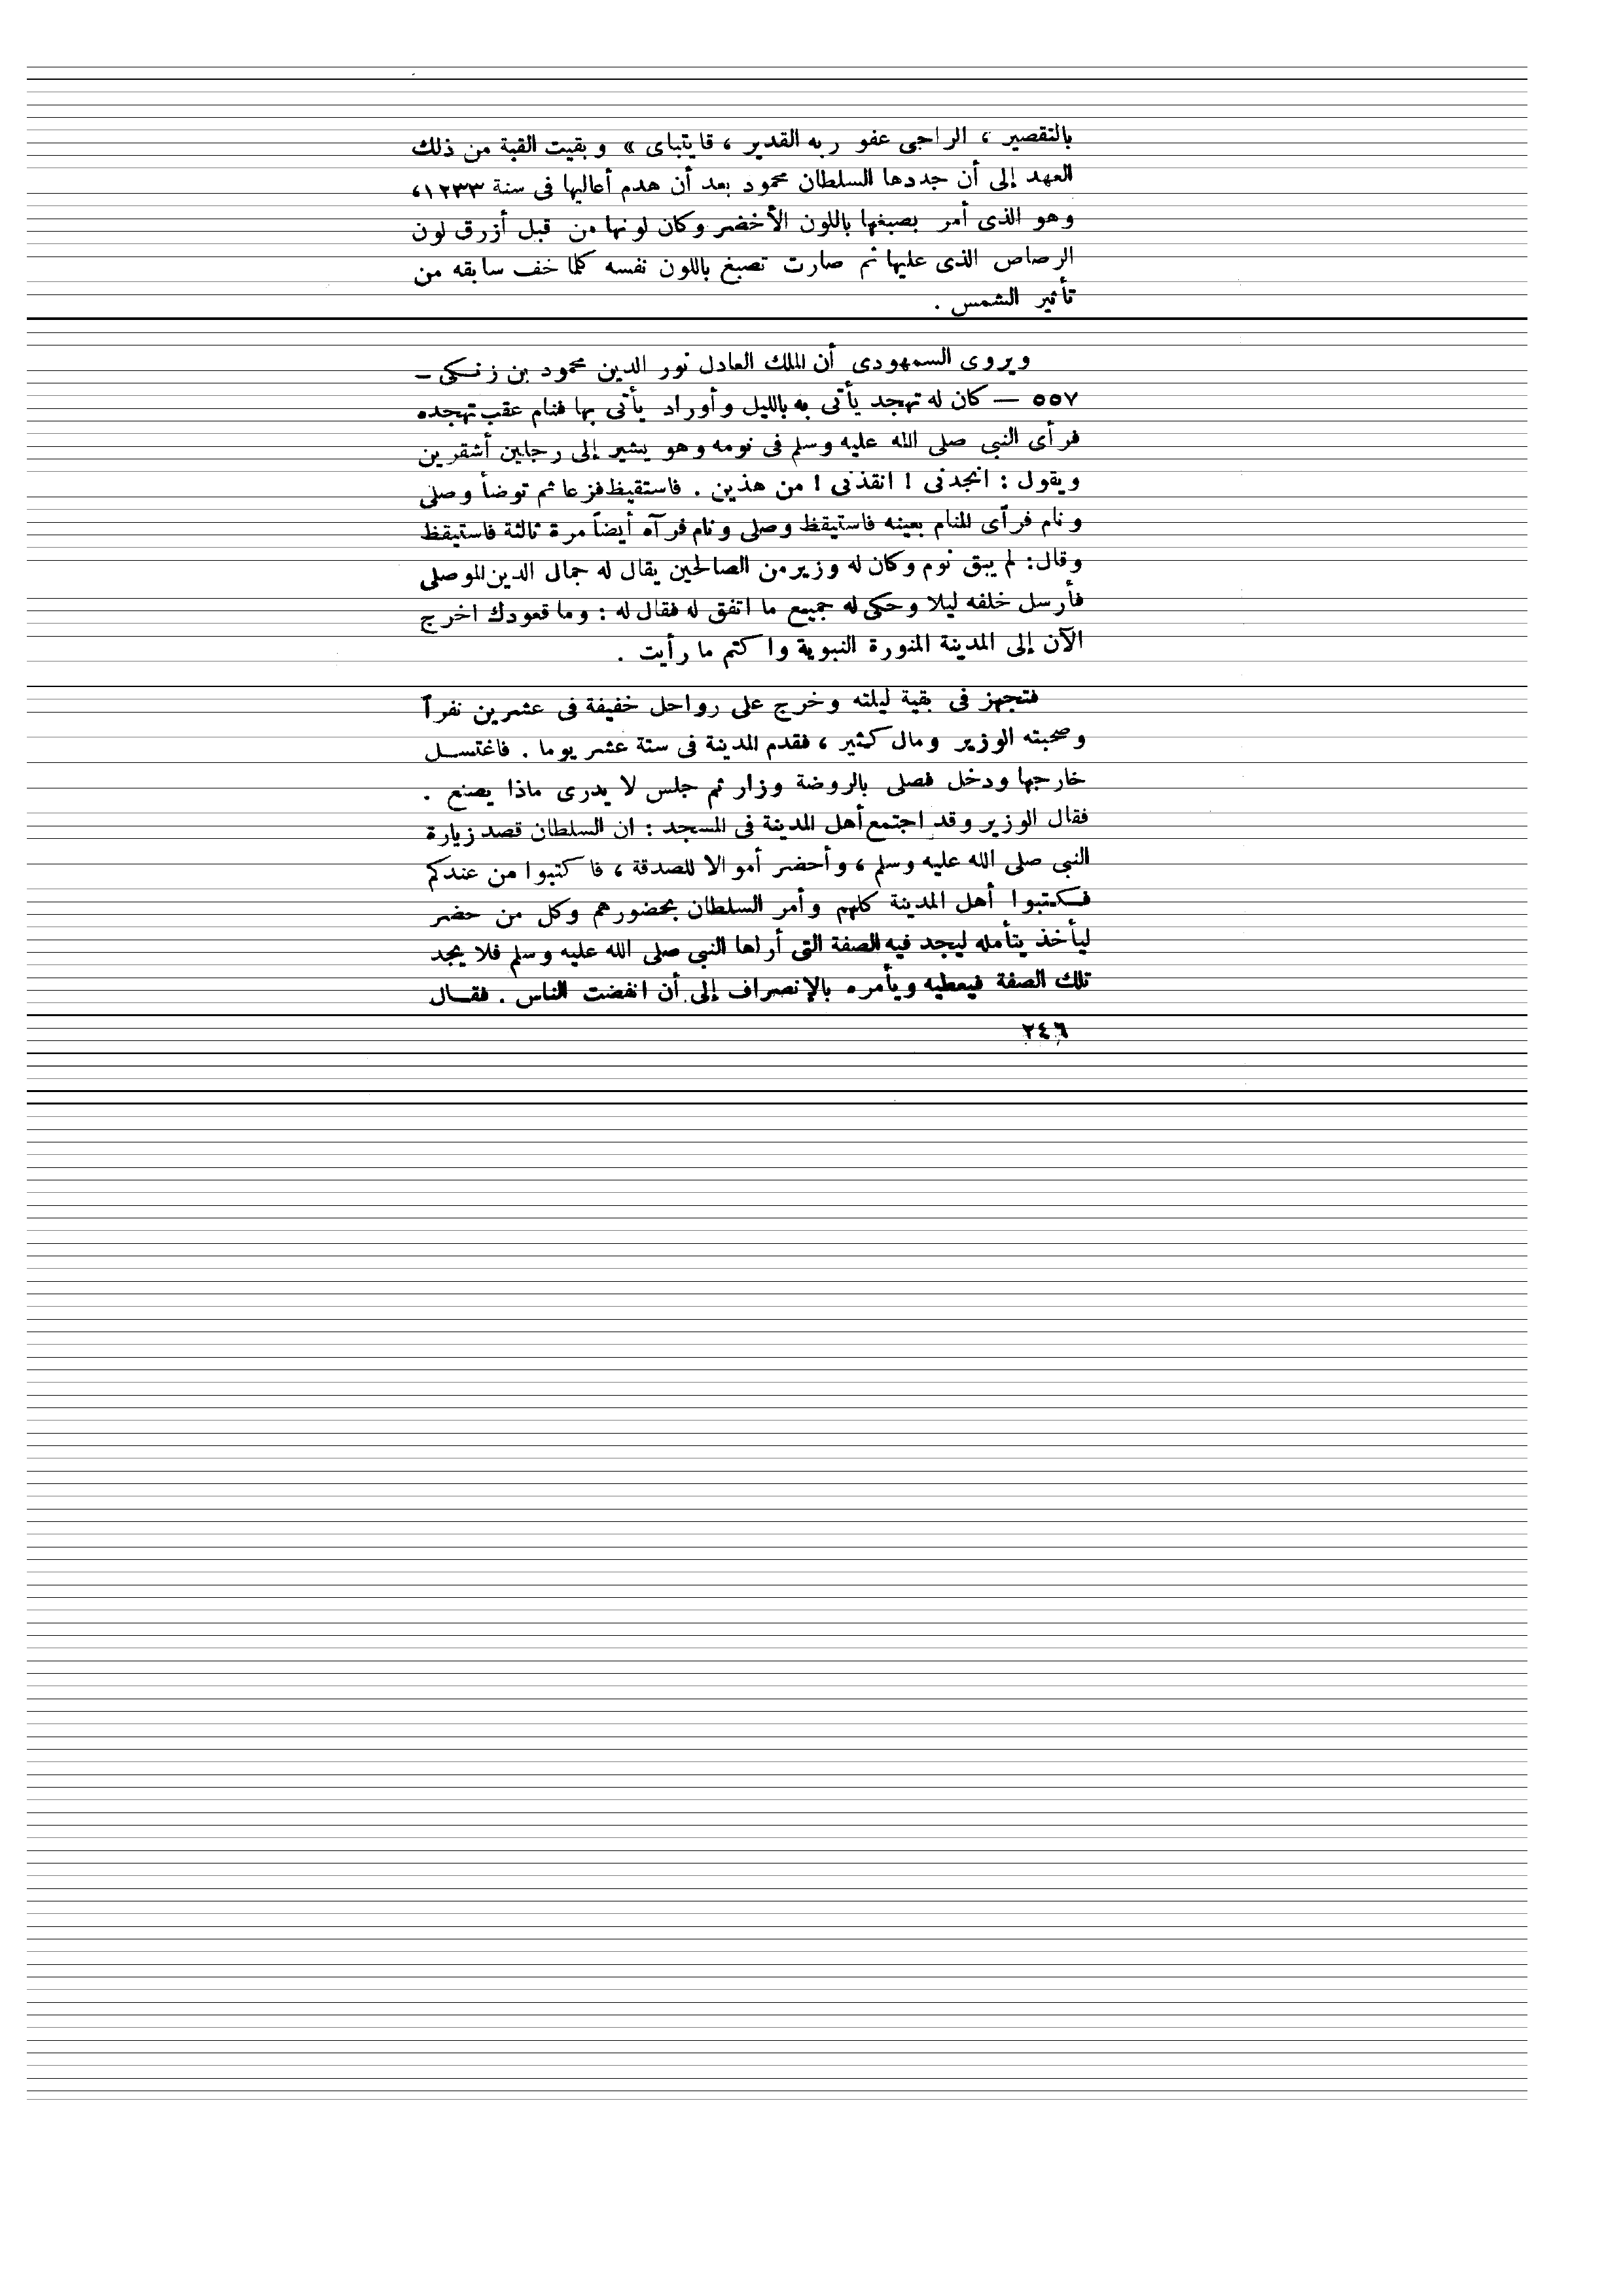 بالتقصير ، الراجى عفو ربه القدير ، قايتباى » وبقيت القبة من ذلك
العهد إلى أن جددها السلطان محمود بعد أن هدم أعاليها فى سنة ١٢٣٣،
وهو الذى أمر بصبغها باللون الأخضر وكان لونها من قبل أزرق لون
الرصاص الذى عليها ثم صارت تصبغ باللون نفسه كلما خف سابقه من
تأثير الشمس .
ويروى السمهودى أن الملك العادل نور الدين محمود بن زنكى –
٥٥٧ — كان له تهجد يأتى به بالليل وأوراد يأتى بها فنام عقب تهجده
فرأى النبى صلى الله عليه وسلم فى نومه وهو يشير إلى رجلين أشقرين
ويقول : انجدنى ! انقذنى ! من هذين . فاستقيظ فزعا ثم توضأ وصلى
ونام فرآى المنام بعينه فاستيقظ وصلى ونام فرآه أيضاً مرة ثالثة فاستيقظ
وقال : لم يبق نوم وكان له وزير من الصالحين يقال له جمال الدين الموصلى
فأرسل خلفه ليلا وحكى له جميع ما اتفق له فقال له : وما قعودك اخرج
الآن إلى المدينة المنورة النبوية واكتم ما رأيت .
فتجهز فى بقية ليلته وخرج على رواحل خفيفة فى عشرين نفراً
وصحبته الوزير ومال كثير ، فقدم المدينة فى ستة عشر يوما . فاغتسل
خارجها ودخل فصلى بالروضة وزار ثم جلس لا يدرى ماذا يصنع .
فقال الوزير وقد اجتمع أهل المدينة فى المسجد : ان السلطان قصد زيارة
النبى صلى الله عليه وسلم ، وأحضر أموالا للصدقة ، فاكتبوا من عندكم
فكتبوا أهل المدينة كلهم وأمر السلطان بحضورهم وكل من حضر
ليأخذ يتأمله ليجد فيه الصفة التى أراها النبى صلى الله عليه وسلم فلا يجد
تلك الصفة فيعطيه ويأمره بالإنصراف إلى أن انفضت الناس . فقال
٢٤٦